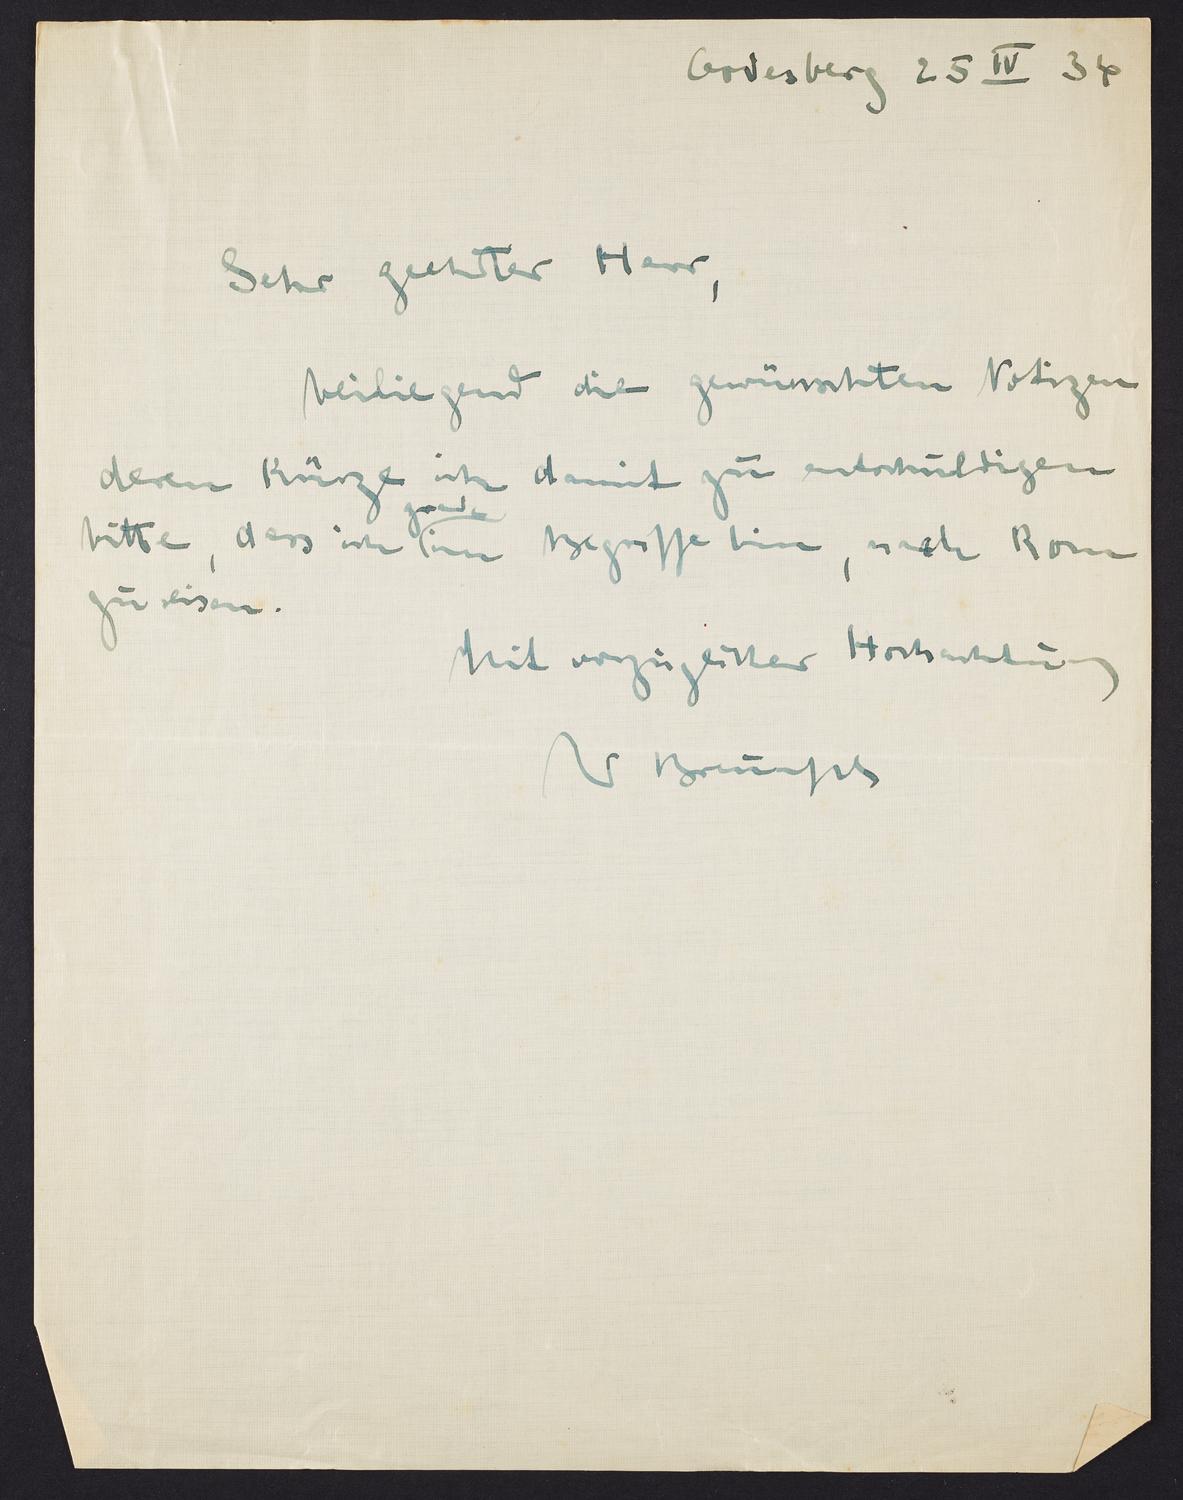 Godesberg 25 IV 34
Sehr geehrter Herr,
beiliegend die gewünschten Notizen
deren Kürze ich damit zu entschuldigen
grade
bitte, dass ich im Begriffe bin, nach Rom
zu reisen.
Mit vorzüglicher Hochachtung